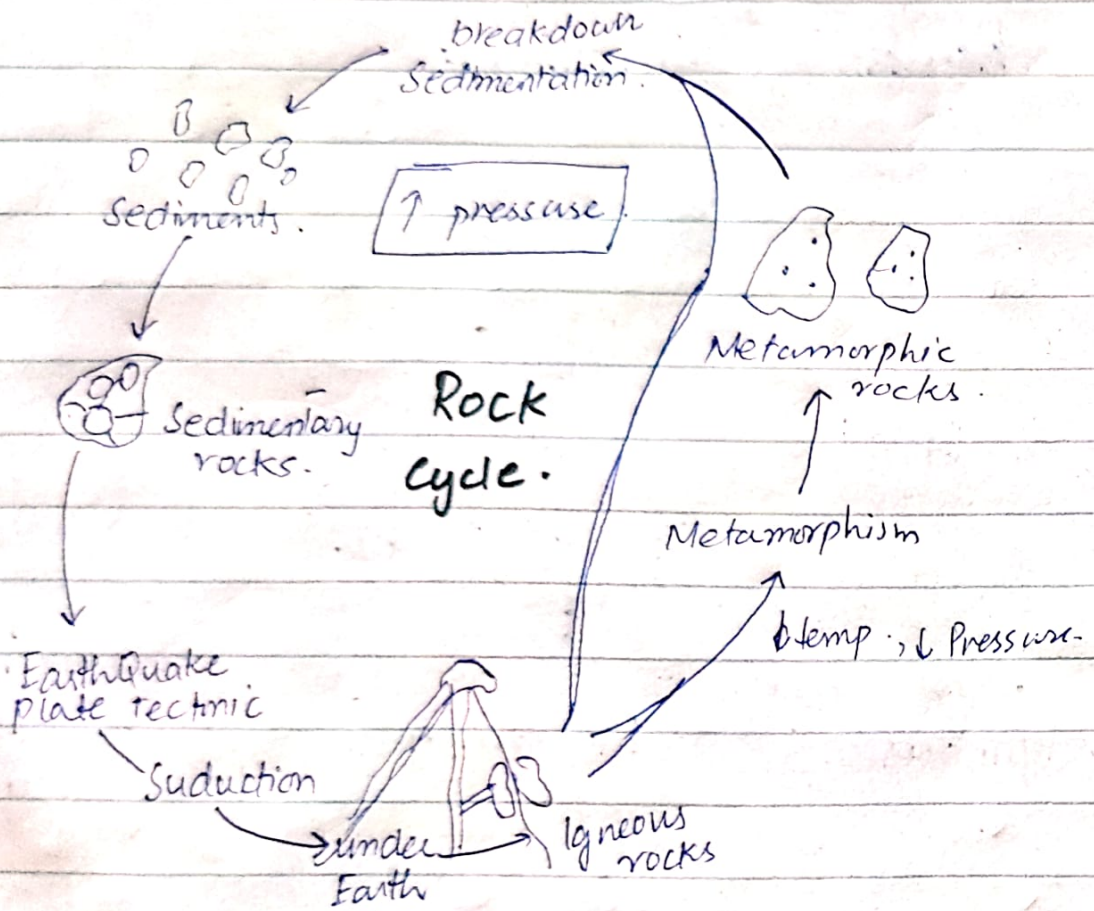 breakdown
Sedimentation.
Sediments.
↑ pressure
Metamorphic
rocks.
Rock
Cycle.
Sedimentary
rocks.
Metamorphism
temp., ↓ Pressure
EarthQuake
plate Tectnic
Suduction
under
Earth
Igneous
rocks